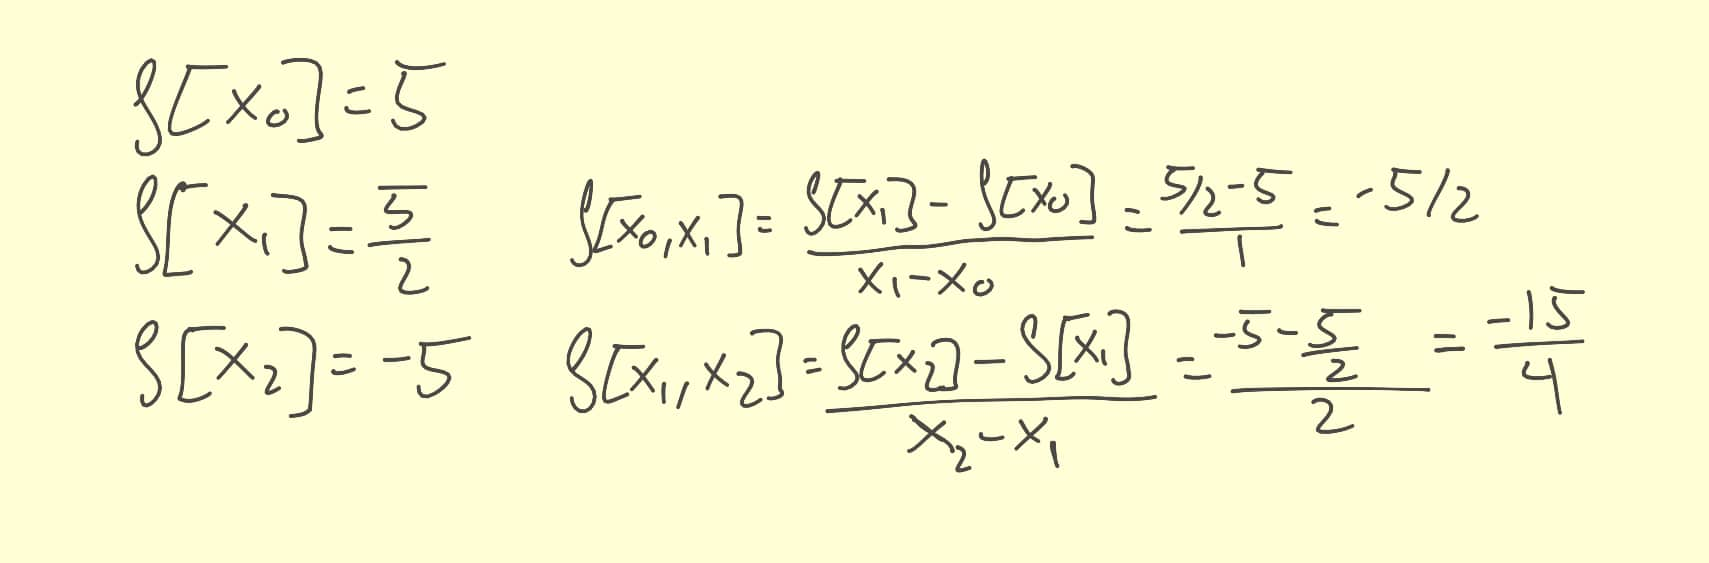 f[x₀]=5
f[x₁]=5/2 f[x₀,x₁]=(f[x₁]-f[x₀])/(x₁-x₀)=(5/2-5)/1=-5/2
f[x₂]=-5 f[x₁,x₂]=(f[x₂]-f[x₁])/(x₂-x₁)=(-5-5/2)/2=-15/4